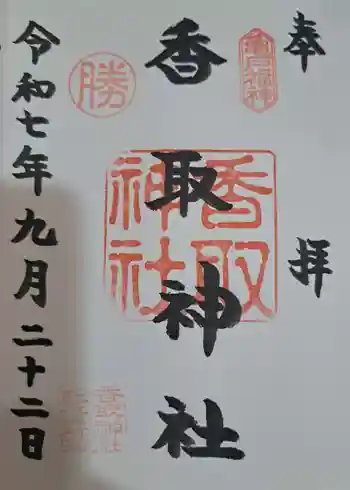 奉拝
香取神社
令和七年九月二十二日
勝
香取神社